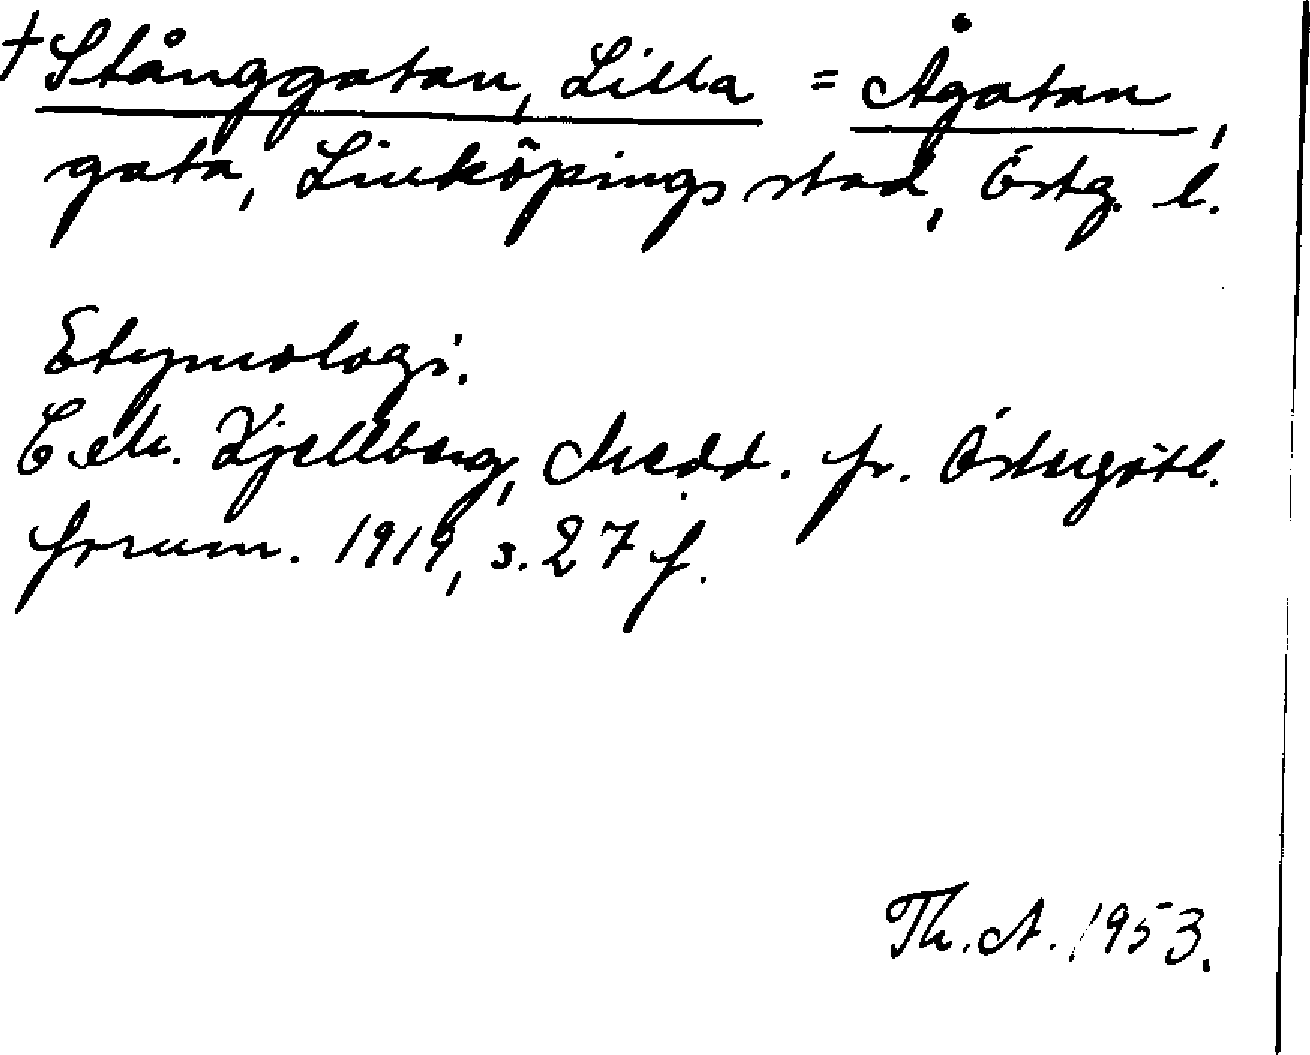 †Stånggatan, Lilla = Ågatan,
gata, Linköpings stad, Östg. l.
Etymologi.
C. M. Kjellberg, Medd. fr. Östergötl.
fornm. 1919, s. 27 f.
Th. A. 1953.